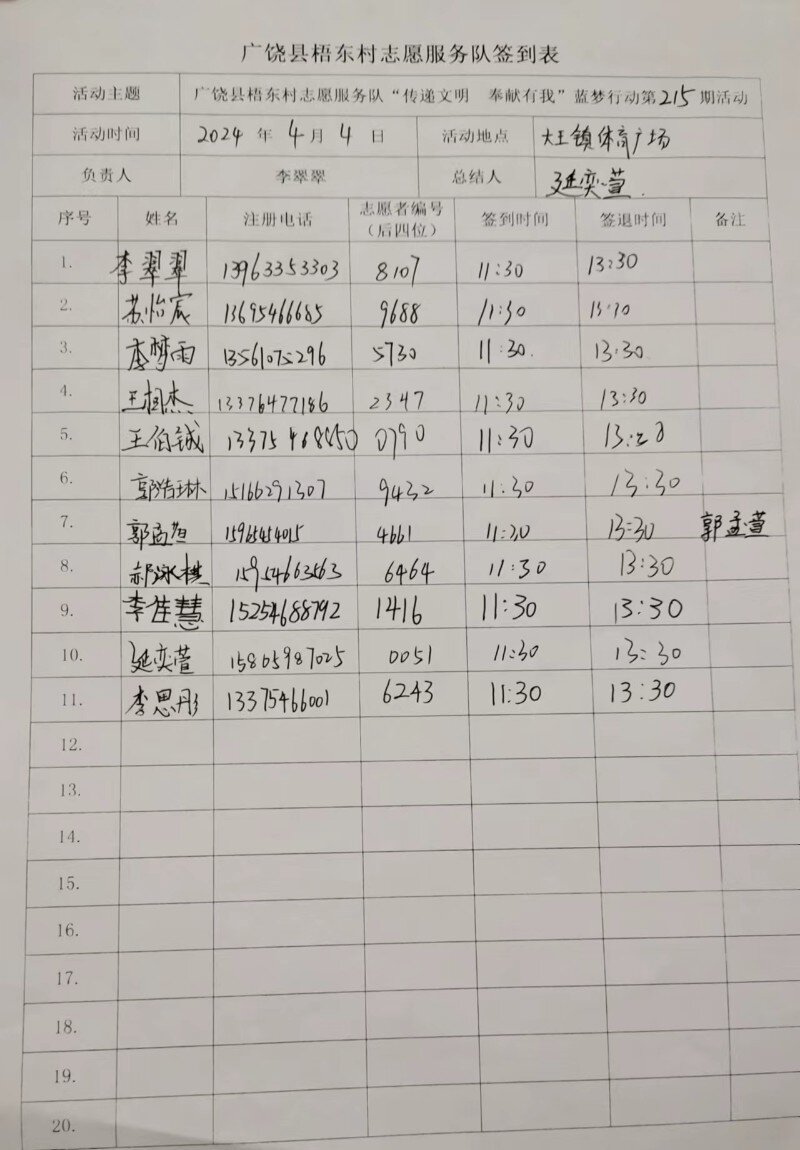 广饶县梧东村志愿服务队签到表
活动主题 广饶县梧东村志愿服务队“传递文明 奉献有我”蓝梦行动第215期活动
活动时间 2024 年 4 月 4 日 活动地点 大王镇体育广场
负责人 李翠翠 总结人 延奕萱
序号 姓名 注册电话 志愿者编号（后四位） 签到时间 签退时间 备注
1. 李翠翠 13963353303 8107 11:30 13:30
2. 苏怡宸 13695466685 9688 11:30 13:30
3. 李梦雨 13561075296 5730 11:30 13:30
4. 王相杰 13376477186 2347 11:30 13:30
5. 王伯铖 0790 11:30
6. 郭浩琳 15166291307 9432 11:30 13:30
7. 郭孟萱 15965454015 4661 11:30 13:30 郭孟萱
8. 郝泳棋 15954663563 6464 11:30 13:30
9. 李佳慧 15254688792 1416 11:30 13:30
10. 延奕萱 15865987025 0051 11:30 13:30
11. 李思彤 13375466001 6243 11:30 13:30
12.
13.
14.
15.
16.
17.
18.
19.
20.